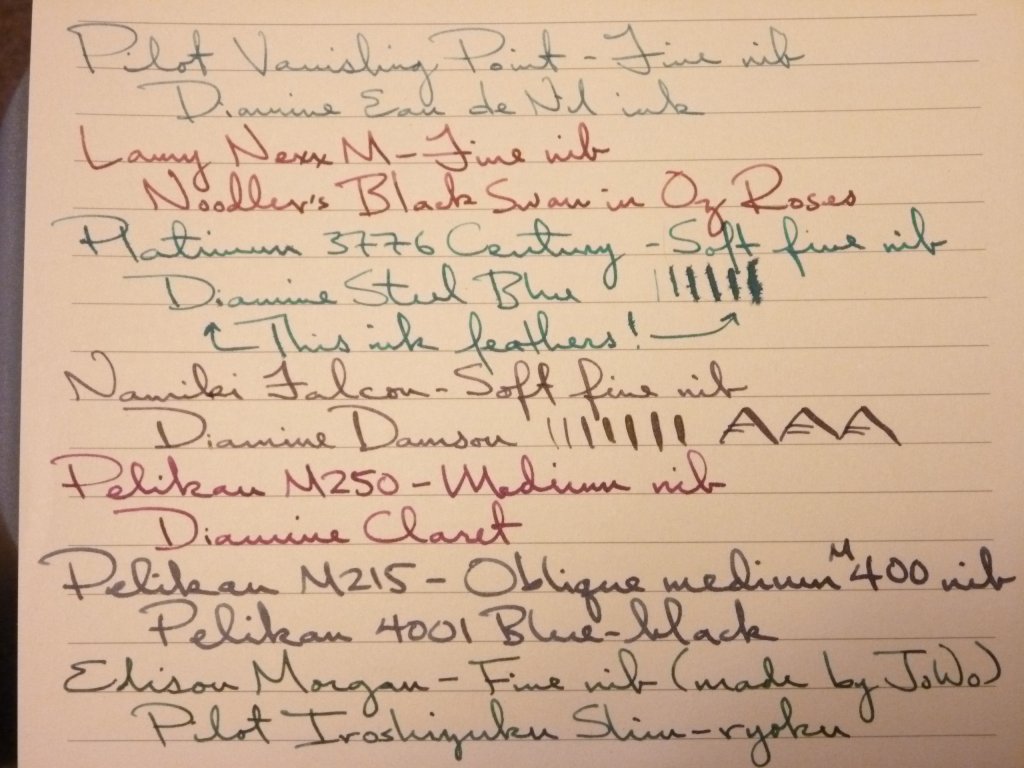 Pilot Vanishing Point - Fine nib
Diamine Eau de Nil ink
Lamy Nexx M - Fine nib
Noodler's Black Swan in Oz Roses
Platinum 3776 Century - Soft fine nib
Diamine Steel Blue
This ink feathers!
Namiki Falcon - Soft fine nib
Diamine Damson AAA
Pelikan M250 - Medium nib
Diamine Claret
Pelikan M215 - Oblique medium M400 nib
Pelikan 4001 Blue-black
Edison Morgan - Fine nib (made by JoWo)
Pilot Iroshizuku Shin-ryoku